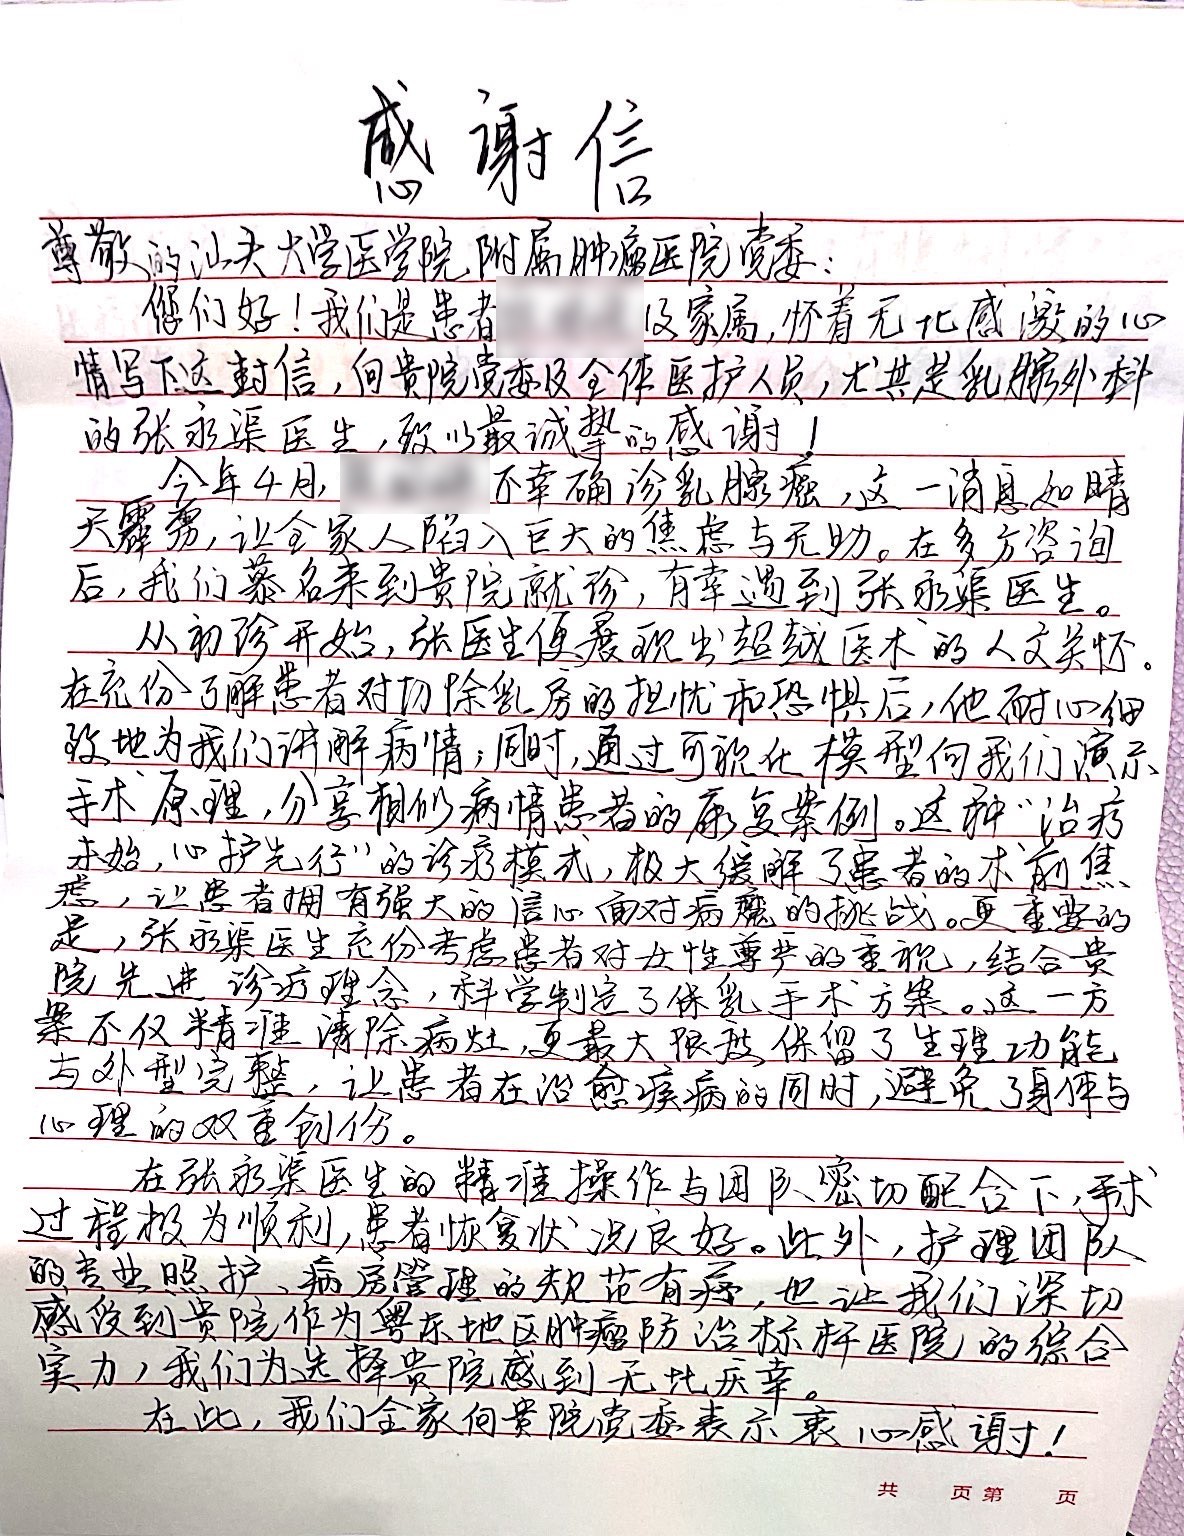 感谢信
尊敬的汕头大学医学院附属肿瘤医院党委:
您们好!我们是患者 及家属,怀着无比感激的心
情写下这封信,向贵院党委及全体医护人员,尤其是乳腺外科
的张永渠医生,致以最诚挚的感谢!
今年4月, 不幸确诊乳腺癌,这一消息如晴
天霹雳,让全家人陷入巨大的焦虑与无助。在多方咨询
后,我们慕名来到贵院就诊,有幸遇到张永渠医生。
从初诊开始,张医生便展现出超越医术的人文关怀。
在充份了解患者对切除乳房的担忧和恐惧后,他耐心细
致地为我们讲解病情;同时,通过可视化模型向我们演示
手术原理,分享相似病情患者的康复案例。这种“治疗
未始,心护先行”的诊疗模式,极大缓解了患者的术前焦
虑,让患者拥有强大的信心面对病魔的挑战。更重要的
是,张永渠医生充份考虑患者对女性尊严的重视,结合贵
院先进诊疗理念,科学制定了保乳手术方案。这一方
案不仅精准清除病灶,更最大限度保留了生理功能
与外型完整,让患者在治愈疾病的同时,避免了身体与
心理的双重创伤。
在张永渠医生的精准操作与团队密切配合下,手术
过程极为顺利,患者恢复状况良好。此外,护理团队
的专业照护、病房管理的规范有序,也让我们深切
感受到贵院作为粤东地区肿瘤防治标杆医院的综合
实力,我们为选择贵院感到无比庆幸。
在此,我们全家向贵院党委表示衷心感谢!
共 页 第 页